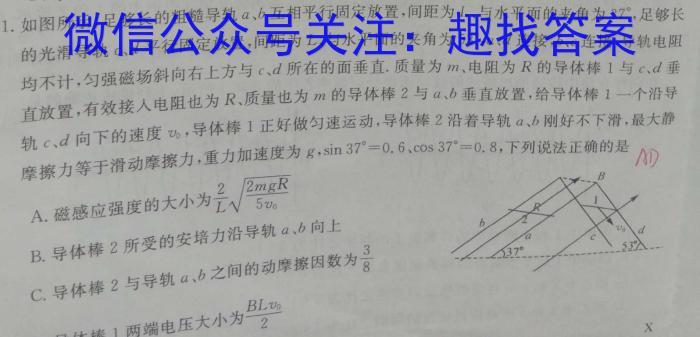 1. 如图所 足够长的粗糙导轨a、b互相平行固定放置,间距为L,与水平面的夹角为37°,足够长
的光滑导轨 平行固定放置,间距为 与水平面的夹角为 导轨电阻
微信公众号关注:趣找答案
均不计,匀强磁场斜向右上方与c、d所在的面垂直.质量为m、电阻为R的导体棒1与c、d垂
直放置,有效接入电阻也为R、质量也为m的导体棒2与a、b垂直放置,给导体棒1一个沿导
轨c、d向下的速度v₀,导体棒1正好做匀速运动,导体棒2沿着导轨a、b刚好不下滑,最大静
摩擦力等于滑动摩擦力,重力加速度为g,sin 37°=0.6,cos 37°=0.8,下列说法正确的是 AD
A. 磁感应强度的大小为2/L√(2mgR/5v₀)
B. 导体棒2所受的安培力沿导轨a、b向上
C. 导体棒2与导轨a、b之间的动摩擦因数为3/8
导体棒1两端电压大小为BLv₀/2
B
R
1
b
2
v₀
a
c
d
37°
53°
X